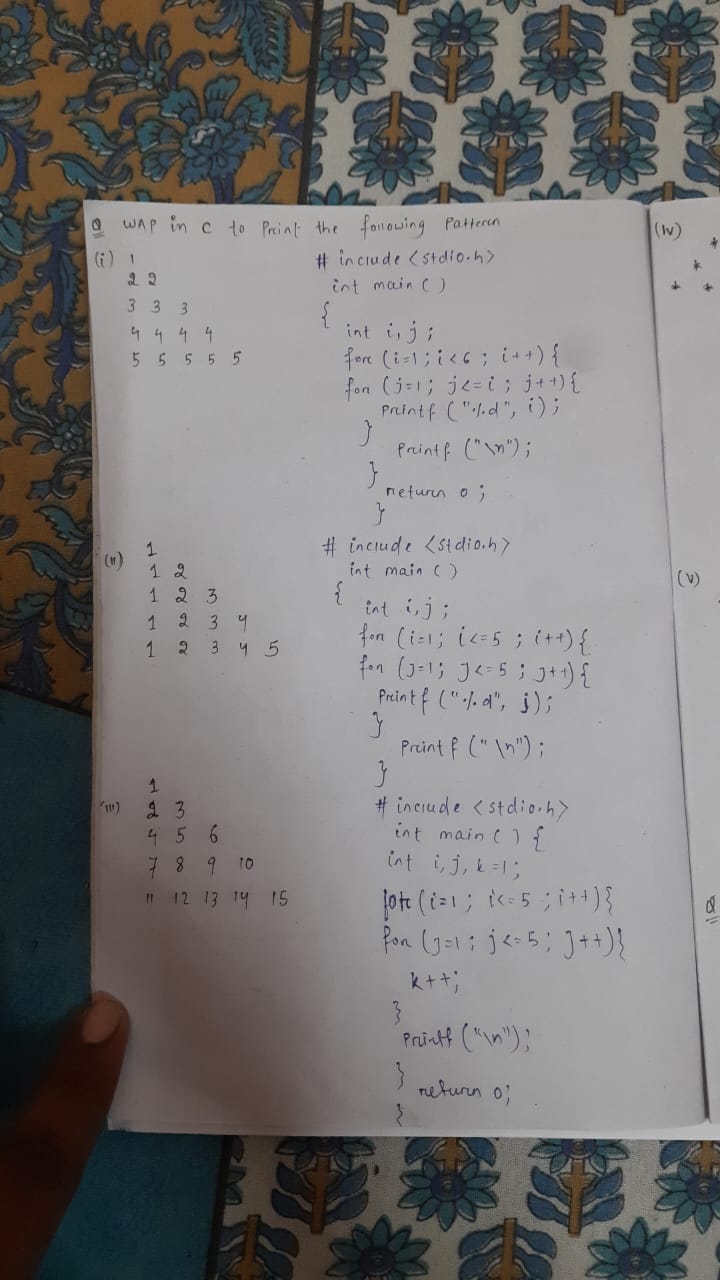 Q WAP in C to Print the following Pattern
(i) 1
2 2
3 3 3
4 4 4 4
5 5 5 5 5
# include <stdio.h>
int main ()
{
int i,j;
for (i=1; i<6; i++) {
for (j=1; j<=i; j++) {
printf ("%d", i);
}
printf ("\n");
}
return 0;
}
(ii) 1
1 2
1 2 3
1 2 3 4
1 2 3 4 5
# include <stdio.h>
int main ()
{
int i,j;
for (i=1; i<=5; i++) {
for (j=1; j<=5; j++) {
printf ("%d", j);
}
printf ("\n");
}
(iii) 1
2 3
4 5 6
7 8 9 10
11 12 13 14 15
# include <stdio.h>
int main () {
int i,j, k=1;
for (i=1; i<=5; i++) {
for (j=1; j<=5; j++) {
k++;
}
printf ("\n");
}
return 0;
}
(iv)
*
*
* *
(v)
Q